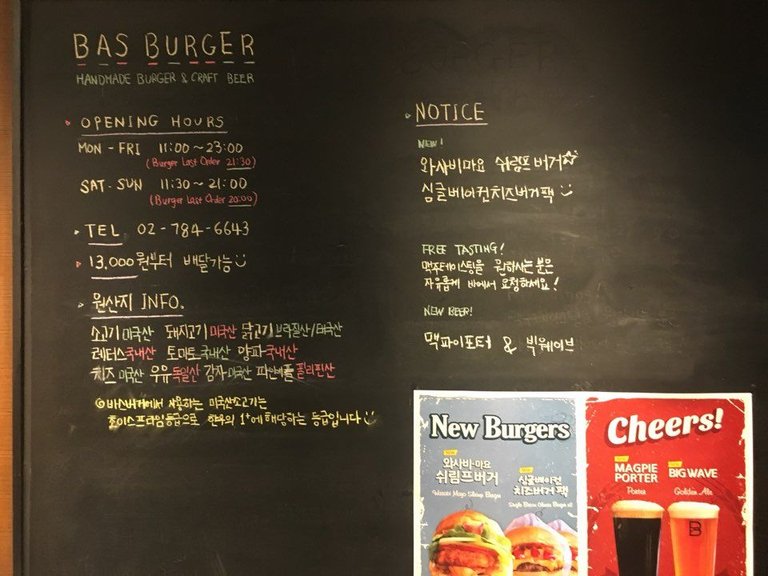 BAS BURGER
HANDMADE BURGER & CRAFT BEER
OPENING HOURS
MON - FRI 11:00 ~ 23:00
(Burger Last Order 21:30)
SAT - SUN 11:30 ~ 21:00
(Burger Last Order 20:00)
TEL 02-784-6643
13,000원부터 배달가능
원산지 INFO.
소고기 미국산 돼지고기 미국산 닭고기 브라질산/태국산
레터스 국내산 토마토 국내산 양파 국내산
치즈 미국산 우유 독일산 감자 미국산 파인애플 필리핀산
바스버거에서 사용하는 미국산소고기는
초이스프라임등급으로 한우의 1+에 해당하는 등급입니다
NOTICE
NEW!
와사비마요 쉬림프 버거
싱글베이컨치즈버거팩
FREE TASTING!
맥주테이스팅을 원하시는 분은
자유롭게 바에서 요청하세요!
NEW BEER!
맥파이포터 & 빅웨이브
New Burgers
와사비마요
쉬림프버거
Wasabi Mayo Shrimp Burger
싱글베이컨
치즈버거 팩
Cheers!
MAGPIE
PORTER
Porter
BIG WAVE
Golden Ale
B